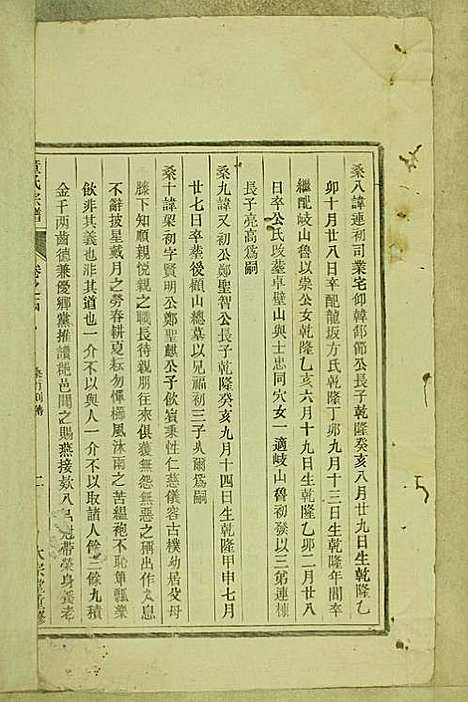 桑八諱連初司業宅仰韓郎節公長子乾隆癸亥八月廿九日生乾隆乙
卯十月廿八日辛酉龍坂方氏乾隆丁卯九月十三日生乾隆年間卒
繼配岐山魯以崇公女乾隆乙亥六月十九日生乾隆乙卯二月廿八
日卒公氏改塟卓壁山與士忠同穴女一適岐山魯初發以三弟連棟
長子亮高爲嗣
桑九諱又初公鄭聖智公長子乾隆癸亥九月十四日生乾隆甲申七月
廿七日卒塟後顱山總墓以兄福初三子火爾爲嗣
桑十諱梁初字賢明公鄭聖麒公子飲賔秉性仁慈儀容古樸幼居父母
膝下知順親悅親之職長待親朋往來俱獲無怨無惡之稱出作入息
不辭披星戴月之勞春耕夏耘勿憚櫛風沐雨之苦縕袍不恥簞瓢樂
飲非其義也非其道也一介不以與人一介不以取諸人餘三餘九積
金千兩齒德兼優鄉黨推讚 邑聞之賜燕接欵八品冠帶榮身養老
氏宗譜
卷之四